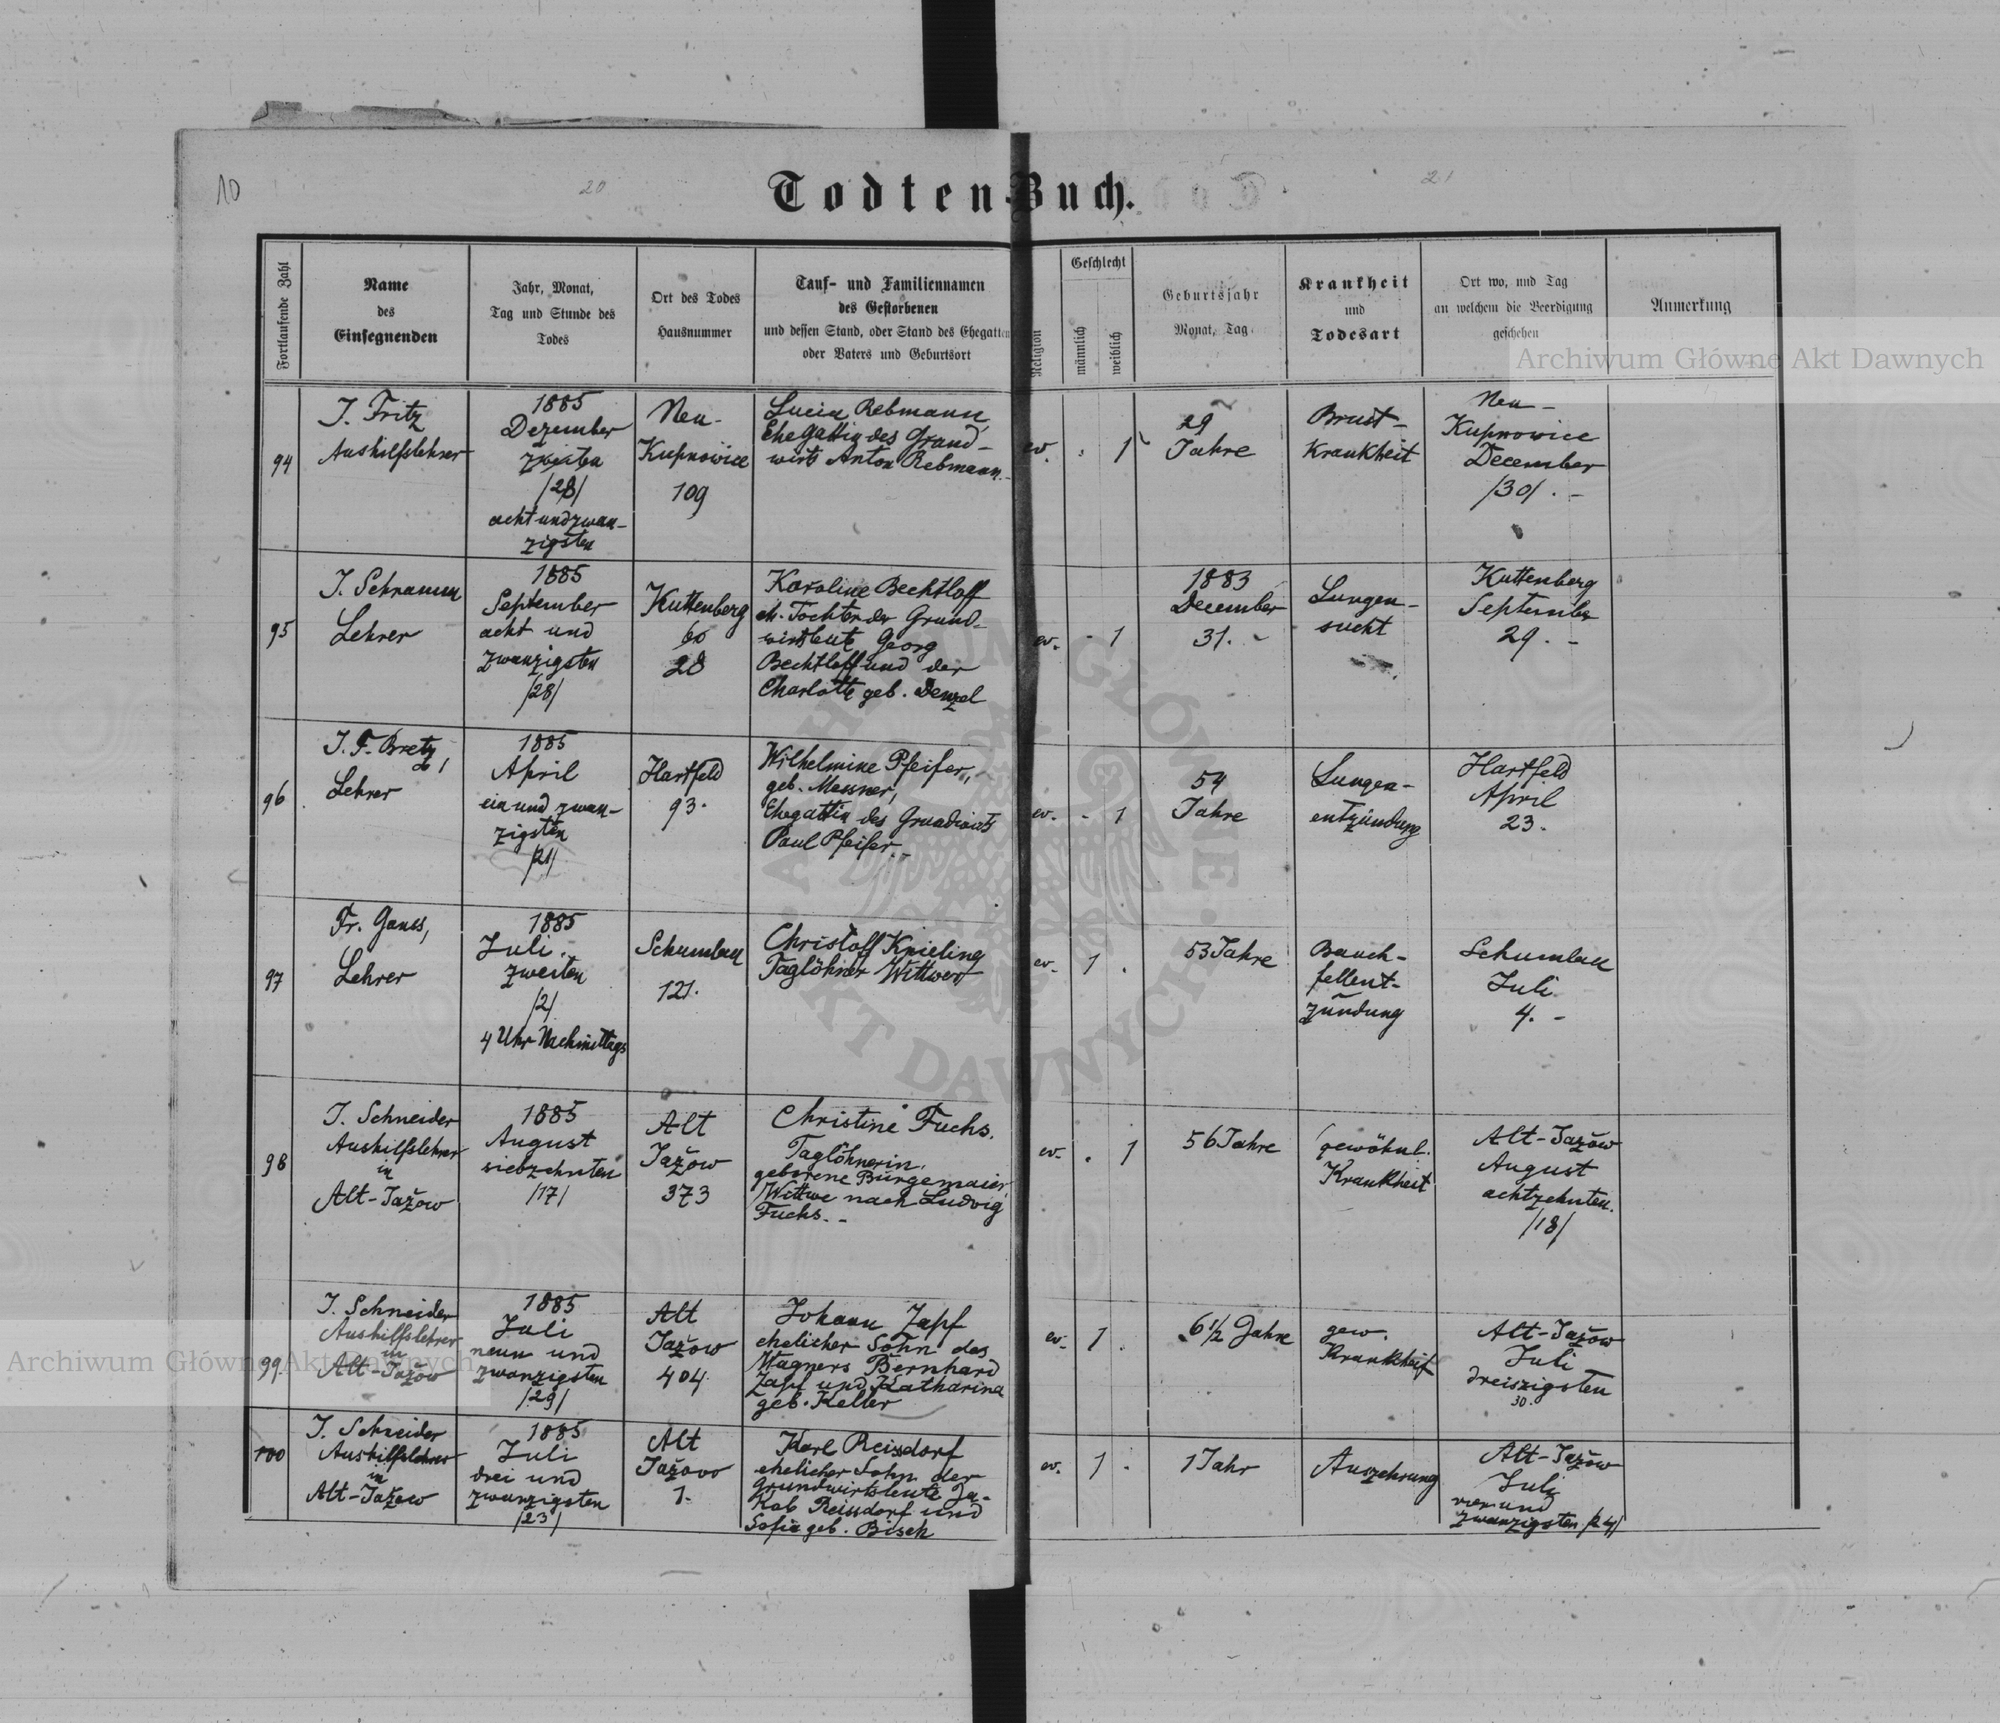 10
20
21
Todten-Buch.
Fortlaufende Zahl
Name
des
Einsegnenden
Jahr, Monat,
Tag und Stunde des
Todes
Ort des Todes
Hausnummer
Tauf- und Familiennamen
des Gestorbenen
und dessen Stand, oder Stand des Ehegatten
oder Vaters und Geburtsort
Religion
Geschlecht
männlich
weiblich
Geburtsjahr
Monat, Tag
Krankheit
und
Todesart
Ort wo, und Tag
an welchem die Beerdigung
geschehen
Anmerkung
94
J. Fritz
Aushilfslehrer
1885
Dezember
/28/
acht und zwan-
zigsten
Neu-
Kupnowice
109
Lucia Rebmann,
Ehegattin des Grund-
wirts Anton Rebmann.-
ev. . 1
29
Jahre
Brust-
Krankheit
Neu-
Kupnowice
December
/30/. -
95
J. Schramm
Lehrer
1885
September
acht und
zwanzigsten
/28/
Kuttenberg
60
28
Karoline Bechtloff
eh. Tochter der Grund-
wirtsleute Georg
Bechtloff und der
Charlotte geb. Denzel
ev. - 1
1883
December
31. -
Lungen-
sucht
Kuttenberg
September
29. -
96
J. F. Bretz,
Lehrer
1885
April
ein und zwan-
zigsten
/21/
Hartfeld
93.
Wilhelmine Pfeifer,
geb. Messner,
Ehegattin des Grundwirts
Paul Pfeifer.-
ev. - 1
54
Jahre
Lungen-
entzündung
Hartfeld
April
23.
97
Fr. Ganss,
Lehrer
1885
Juli.
zweiten
/2/
4 Uhr Nachmittags
Schumlau
121.
Christoff Knieling
Taglöhner Wittwer
ev. 1 .
53 Jahre
Bauch-
fellent-
zündung
Schumlau
Juli
4. -
98
J. Schneider
Aushilfslehrer
in
Alt-Jažow
1885
August
siebzehnten
/17/
Alt
Jažow
373
Christine Fuchs.
Taglöhnerin,
geborene Bürgemaier
Wittwe nach Ludwig
Fuchs. -
ev. . 1
56 Jahre
gewöhnl.
Krankheit
Alt-Jažow
August
achtzehnten.
/18/
99.
J. Schneider
Aushilfslehrer
in
Alt-Jažow
1885
Juli
neun und
zwanzigsten
/29/
Alt
Jažow
404.
Johann Zapf
ehelicher Sohn des
Wagners Bernhard
Zapf und Katharina
geb. Keller
ev. 1 .
6 1/2 Jahre
gew.
Krankheit
Alt-Jažow
Juli
dreiszigsten
30.
100
J. Schneider
Aushilfslehrer
in
Alt-Jažow
1885
Juli
drei und
zwanzigsten
/23/
Alt
Jažow
1.
Karl Reissdorf
ehelicher Sohn der
Grundwirtsleute Ja-
kob Reissdorf und
Sofia geb. Bisch
ev. 1 .
1 Jahr
Auszehrung
Alt-Jažow
Juli
vier und
zwanzigsten /24/
Archiwum Główne Akt Dawnych
Archiwum Główne Akt Dawnych
ARCHIWUM GŁÓWNE · AKT DAWNYCH ·